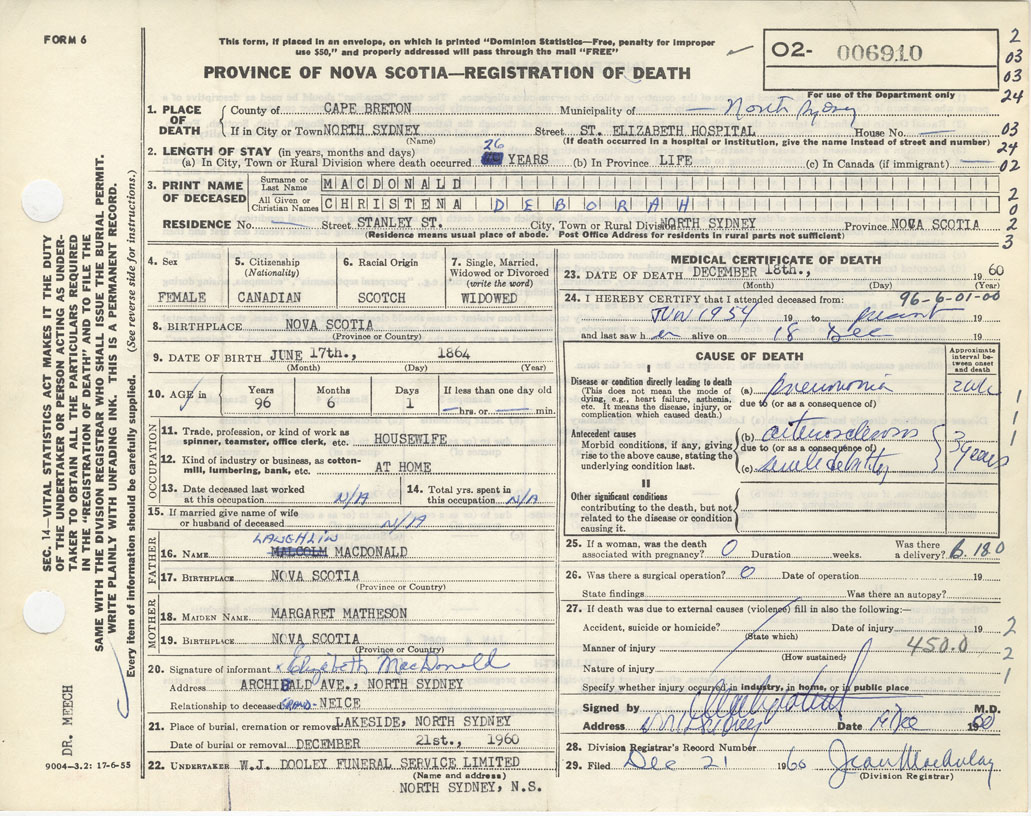 FORM 6
This form, if placed in an envelope, on which is printed "Dominion Statistics—Free, penalty for improper
use $50," and properly addressed will pass through the mail "FREE"
PROVINCE OF NOVA SCOTIA—REGISTRATION OF DEATH
02- 006910
For use of the Department only
2
03
03
24
1. PLACE OF DEATH
County of CAPE BRETON Municipality of — North Sydney
If in City or Town NORTH SYDNEY Street ST. ELIZABETH HOSPITAL House No. —
(Name) (If death occurred in a hospital or institution, give the name instead of street and number)
03
24
02
2. LENGTH OF STAY (in years, months and days)
(a) In City, Town or Rural Division where death occurred 26 YEARS (b) In Province LIFE (c) In Canada (if immigrant) —
3. PRINT NAME OF DECEASED
Surname or Last Name MACDONALD
All Given or Christian Names CHRISTENA DEBORAH
RESIDENCE No. — Street STANLEY ST. City, Town or Rural Division NORTH SYDNEY Province NOVA SCOTIA
(Residence means usual place of abode. Post Office Address for residents in rural parts not sufficient)
2
0
2
3
SEC. 14—VITAL STATISTICS ACT MAKES IT THE DUTY
OF THE UNDERTAKER OR PERSON ACTING AS UNDER-
TAKER TO OBTAIN ALL THE PARTICULARS REQUIRED
IN THE "REGISTRATION OF DEATH" AND TO FILE THE
SAME WITH THE DIVISION REGISTRAR WHO SHALL ISSUE THE BURIAL PERMIT.
WRITE PLAINLY WITH UNFADING INK. THIS IS A PERMANENT RECORD.
Every item of information should be carefully supplied. (See reverse side for instructions.)
DR. MEECH
9004—3.2: 17-6-55
4. Sex
FEMALE
5. Citizenship
(Nationality)
CANADIAN
6. Racial Origin
SCOTCH
7. Single, Married,
Widowed or Divorced
(write the word)
WIDOWED
8. BIRTHPLACE NOVA SCOTIA
(Province or Country)
9. DATE OF BIRTH JUNE 17th., 1864
(Month) (Day) (Year)
10. AGE in
Years 96
Months 6
Days 1
If less than one day old
— hrs. or — min.
OCCUPATION
11. Trade, profession, or kind of work as
spinner, teamster, office clerk, etc. HOUSEWIFE
12. Kind of industry or business, as cotton-
mill, lumbering, bank, etc. AT HOME
13. Date deceased last worked
at this occupation N/A
14. Total yrs. spent in
this occupation N/A
15. If married give name of wife
or husband of deceased N/A
FATHER
LAUGHLIN
16. NAME MALCOLM MACDONALD
17. BIRTHPLACE NOVA SCOTIA
(Province or Country)
MOTHER
18. MAIDEN NAME MARGARET MATHESON
19. BIRTHPLACE NOVA SCOTIA
(Province or Country)
20. Signature of informant x Elizabeth MacDonald
Address ARCHIBALD AVE., NORTH SYDNEY
Relationship to deceased GRAND- NEICE
21. Place of burial, cremation or removal LAKESIDE, NORTH SYDNEY
Date of burial or removal DECEMBER 21st., 1960
22. UNDERTAKER W.J. DOOLEY FUNERAL SERVICE LIMITED
(Name and address)
NORTH SYDNEY, N.S.
MEDICAL CERTIFICATE OF DEATH
23. DATE OF DEATH DECEMBER 18th., 1960
(Month) (Day) (Year)
24. I HEREBY CERTIFY that I attended deceased from: 96-6-01-00
Jun 1954 19 to present 19
and last saw h er alive on 18 Dec 19
CAUSE OF DEATH
Approximate interval between onset and death
I
Disease or condition directly leading to death
(This does not mean the mode of
dying, e.g., heart failure, asthenia,
etc. It means the disease, injury, or
complication which caused death.)
(a) pneumonia
due to (or as a consequence of)
Antecedent causes
Morbid conditions, if any, giving
rise to the above cause, stating the
underlying condition last.
(b) arteriosclerosis
due to (or as a consequence of)
(c) senile debility
3 years
1
1
1
II
Other significant conditions
contributing to the death, but not
related to the disease or condition
causing it.
25. If a woman, was the death
associated with pregnancy? 0 Duration weeks. Was there
a delivery?
26. Was there a surgical operation? 0 Date of operation 19
State findings Was there an autopsy?
27. If death was due to external causes (violence) fill in also the following:—
Accident, suicide or homicide? Date of injury 19
(State which)
Manner of injury 450.0
(How sustained)
Nature of injury
Specify whether injury occurred in industry, in home, or in public place
2
2
1
Signed by M.D.
Address Date Dec 1960
28. Division Registrar's Record Number
29. Filed Dec 21 1960 Jean MacAulay
(Division Registrar)